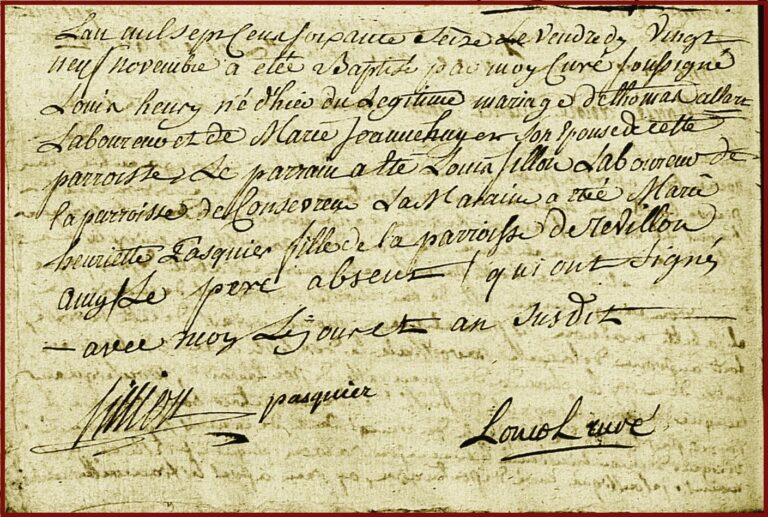 L'an mil sept Cens soixante Seize Le Vendredy Vingt
neuf novembre a eté Baptisé par moy Curé soussigné
Louis henry né d'hier du Legitime mariage de thomas allart
Laboureur et de Marie Jeanne huyer son Epouse de cette
parroisse Le parrain a eté Louis fillon Laboureur de
la parroisse de La Maraine a eté Marie
henriette Pasquier fille de la parroisse de revillon
Le pere absent qui ont signés
avec moy Le jour et an susdit
pasquier
curé